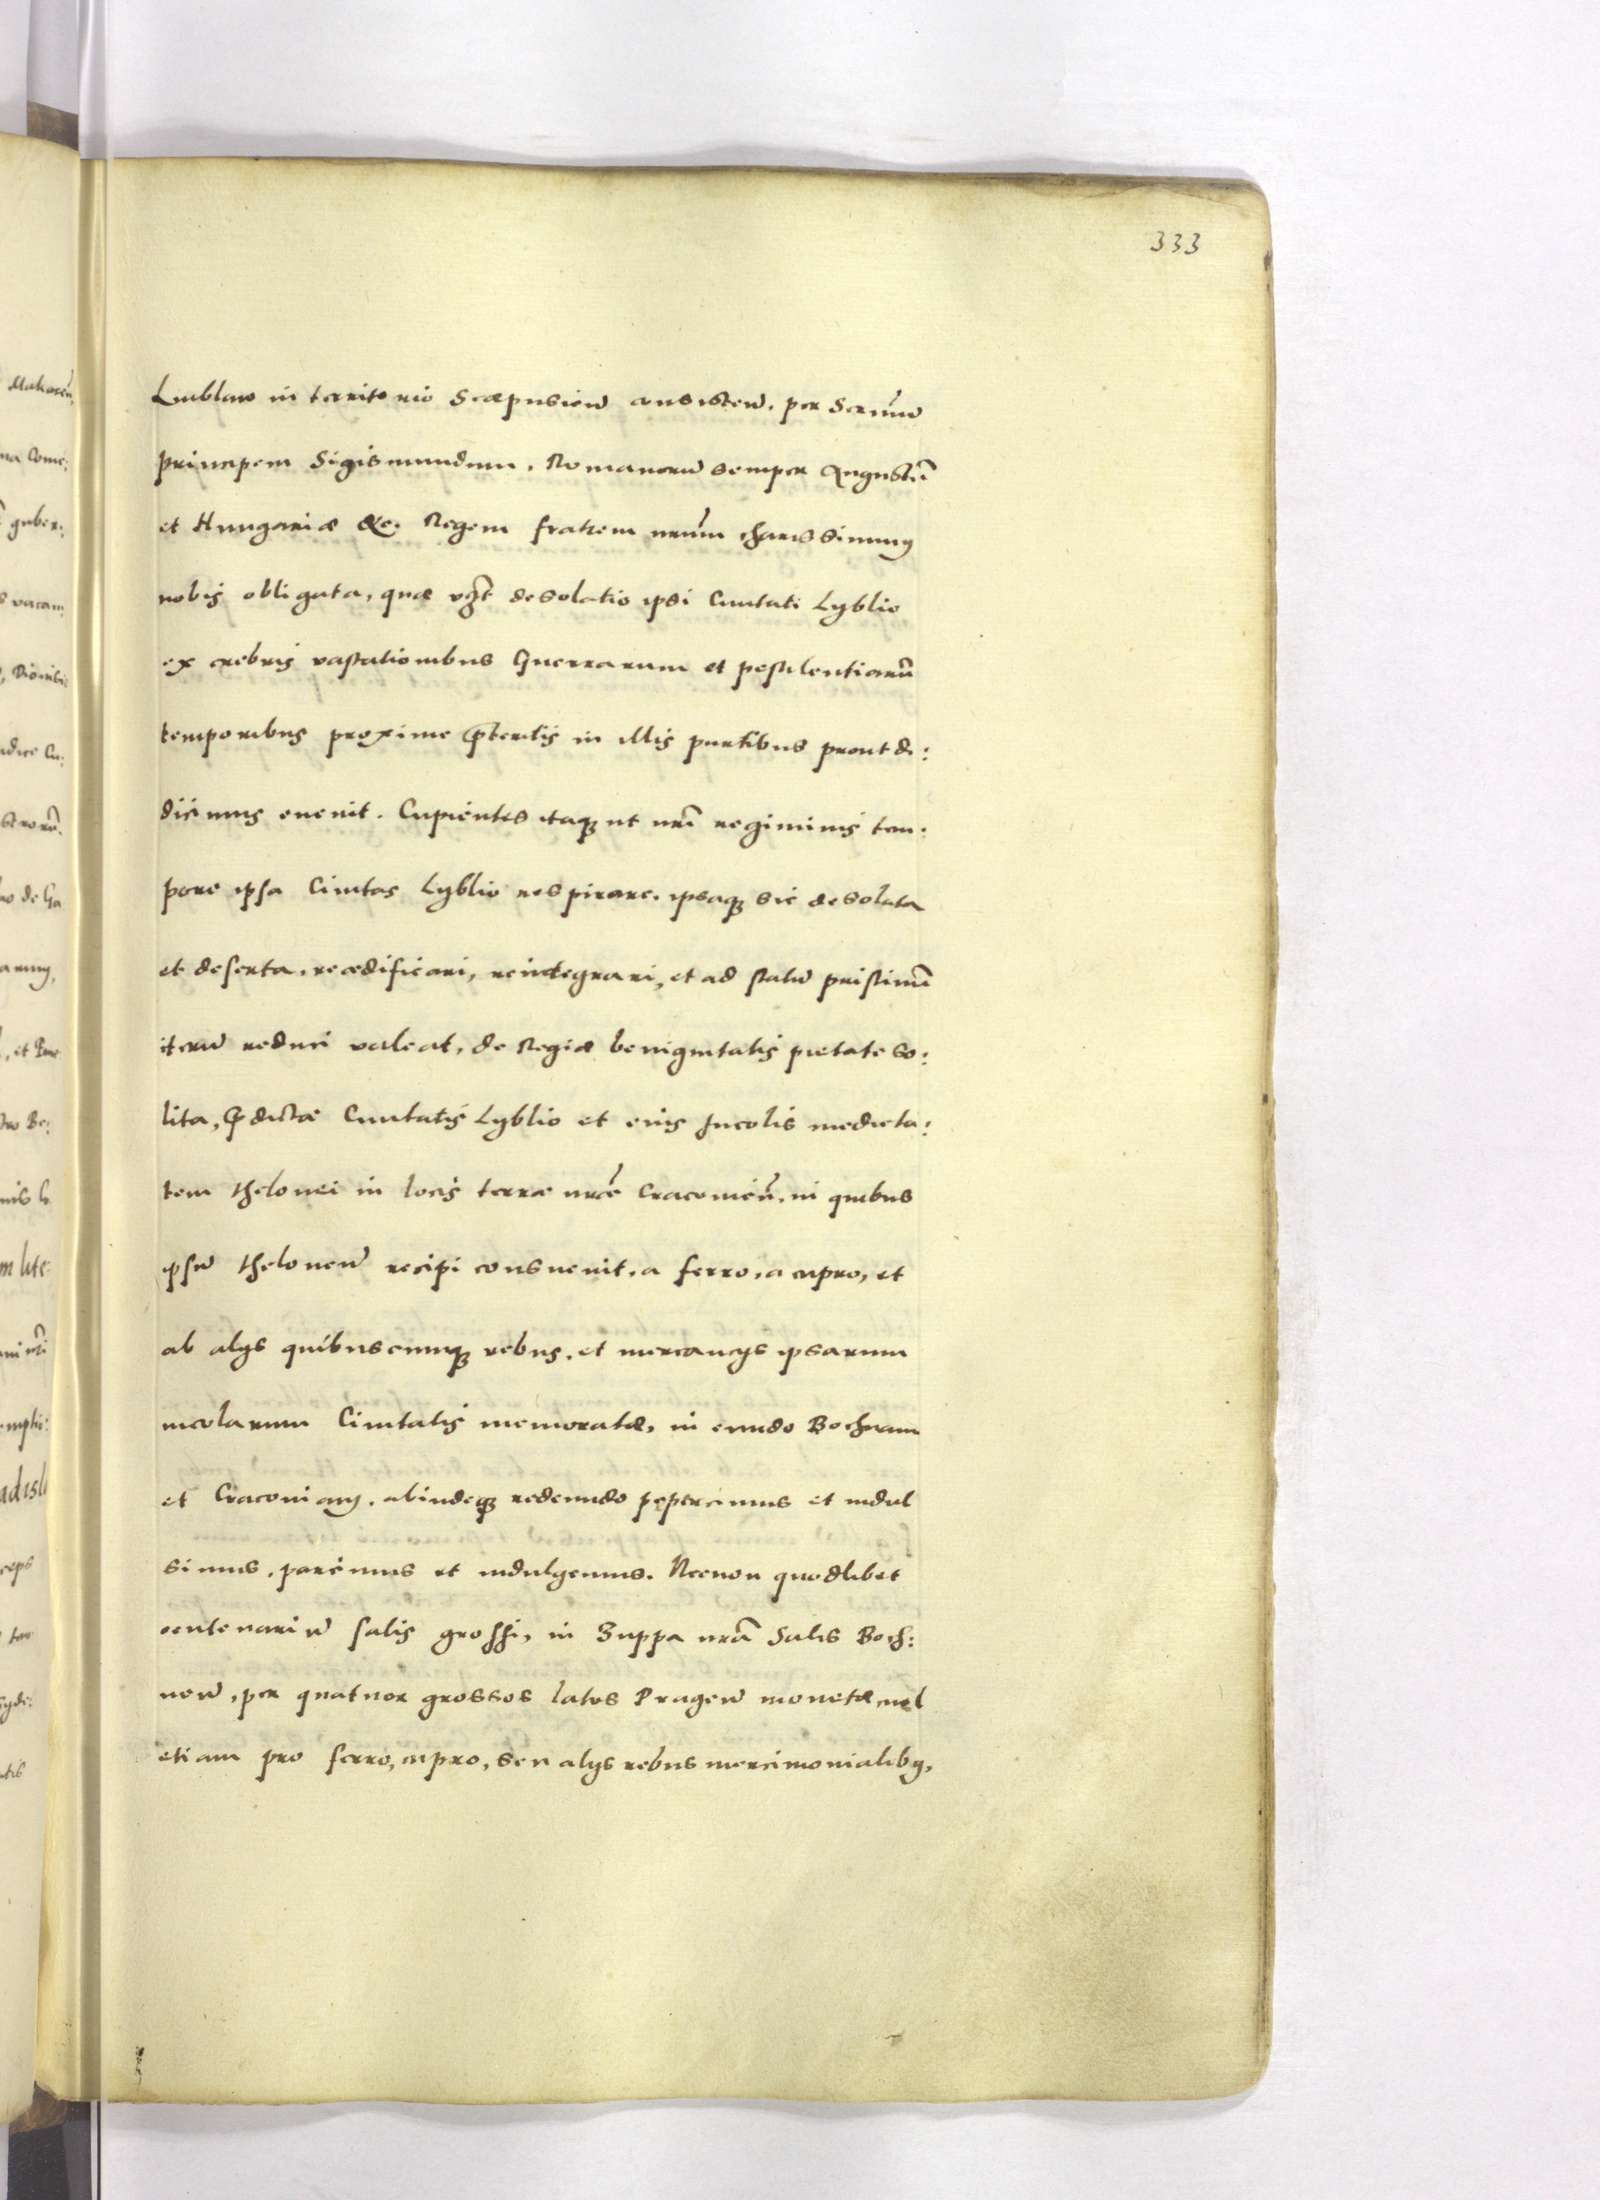 333
Lublaw in territorio Scepusien̄ consisten̄. per Serm̄um
principem Sigismundum, Romanorū semper Augustū
et Hungariæ &c. Regem fratrem nr̄um charissimum
nobis obligata, quæ desolatio ipsi Ciuitati Lyblio
ex crebris vastationibus Guerrarum et pestilentiarū
temporibus proxime p̄teritis in illis partibus prout di:
dicimus euenit. Cupientes itaq; ut nr̄i regiminis tem:
pore ipsa Ciuitas Lyblio respirare, ipsaq; sic desolata
et deserta, reædificari, reintegrari, et ad statū pristinū
iterū reduci valeat, de Regiæ benignitatis pietate so:
lita, p̄dictæ Ciuitatis Lyblio et eius Incolis medieta:
tem thelonei in locis terræ nr̄æ Cracouien̄. in quibus
ipsū theloneū recipi consueuit, a ferro, a cupro, et
ab alijs quibuscumq; rebus, et mercancijs ipsarum
incolarum Ciuitatis memoratæ, in eundo Bochnam
et Cracouiam, abindeq; redeundo pepercimus et indul
simus, parcimus et indulgemus. Necnon quodlibet
centenariū salis grossi, in Zuppa nr̄a Salis Boch:
nen̄, per quatuor grossos latos Pragen̄ monetæ, uel
etiam pro ferro, cupro, seu alijs rebus mercimonialibus,
Makouen̄,
guber:
vacam
et